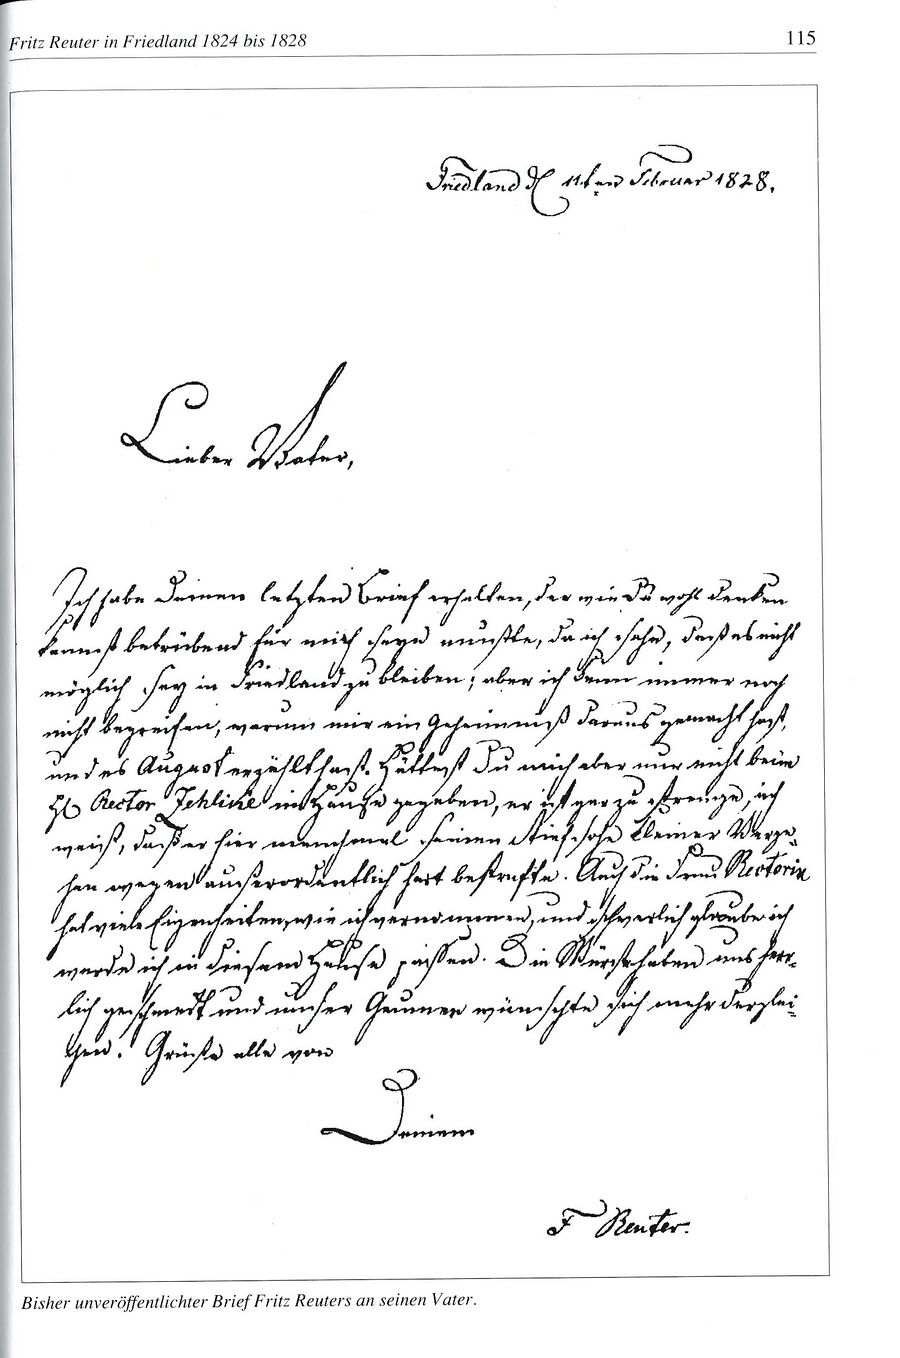 Fritz Reuter in Friedland 1824 bis 1828
115
Friedland d 11ten Februar 1828.
Lieber Vater,
Ich habe Deinen letzten Brief erhalten, der wie Du wohl denken
kannst betrübend für mich seyn mußte, da ich sahe, daß es nicht
möglich sey in Friedland zu bleiben; aber ich kann immer noch
nicht begreifen, warum mir ein Geheimniß daraus gemacht hast,
und es August erzählt hast. Hättest Du mich aber nur nicht beim
H Rector Zehlicke im Hause gegeben, er ist gar zu strenge, ich
weiß, daß er hier manchmal seinen Stiefsohn kleiner Verge-
hen wegen außerordentlich hart bestrafte. Auch die Frau Rectorin
hat viele Eigenheiten, wie ich vernommen, und schwerlich glaube ich
werde ich in diesem Hause passen. Die Würste haben uns herr-
lich geschmeckt und unser Gaumen wünschte sich mehr derglei-
chen. Grüße alle von
Deinem
F Reuter.
Bisher unveröffentlichter Brief Fritz Reuters an seinen Vater.